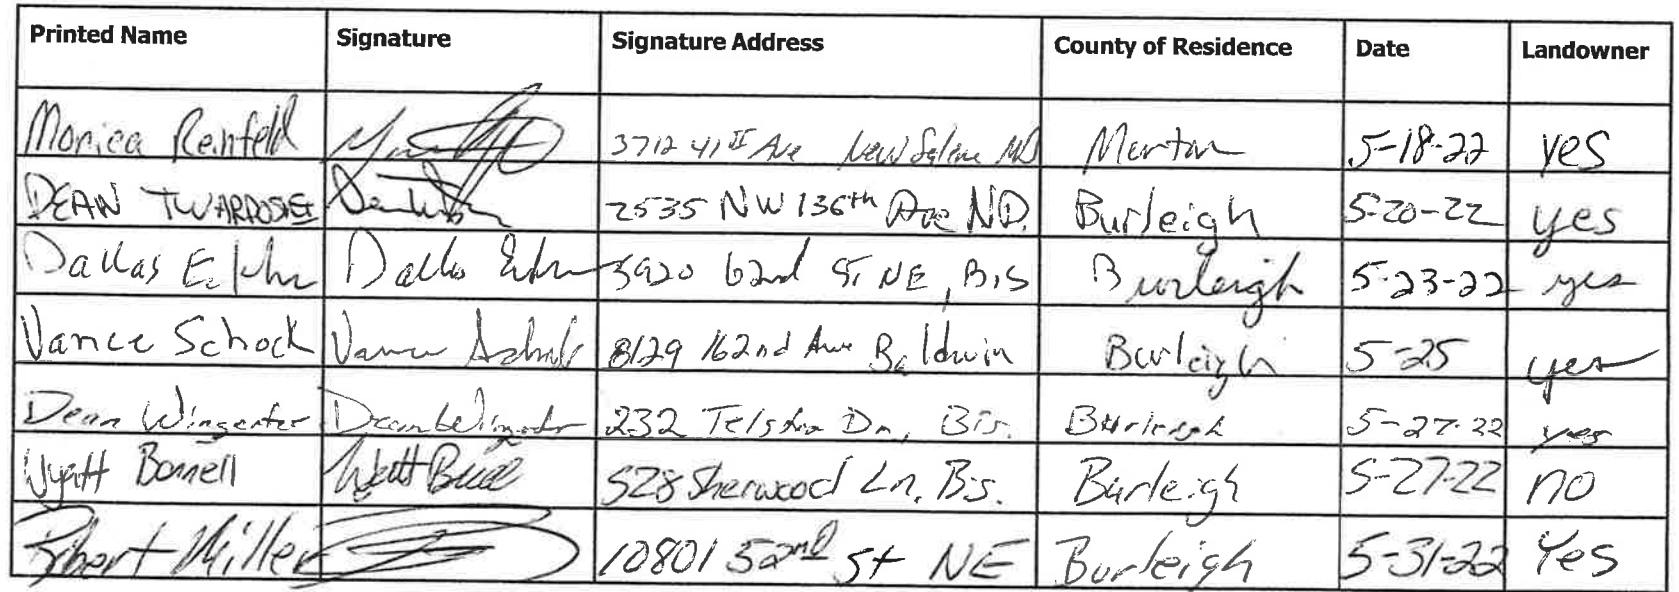 Printed Name Signature Signature Address County of Residence Date Landowner
Monica Renfeld 3712 41st Ave New Salem ND Morton 5-18-22 yes
DEAN TWARDOSKI 2535 NW 136th Ave ND. Burleigh 5-20-22 yes
Dallas Dallas 5920 62nd St NE, Bis Burleigh 5-23-22 yes
Vance Schock Vance Schock 8129 162nd Ave Baldwin Burleigh 5-25 yes
Dean Wingenter Dean Wingenter 232 Telstar Dr, Bis. Burleigh 5-27-22 yes
Wyatt Bonnell 528 Sherwood Ln, Bis. Burleigh 5-27-22 no
Robert Miller 10801 52nd St NE Burleigh 5-31-22 Yes